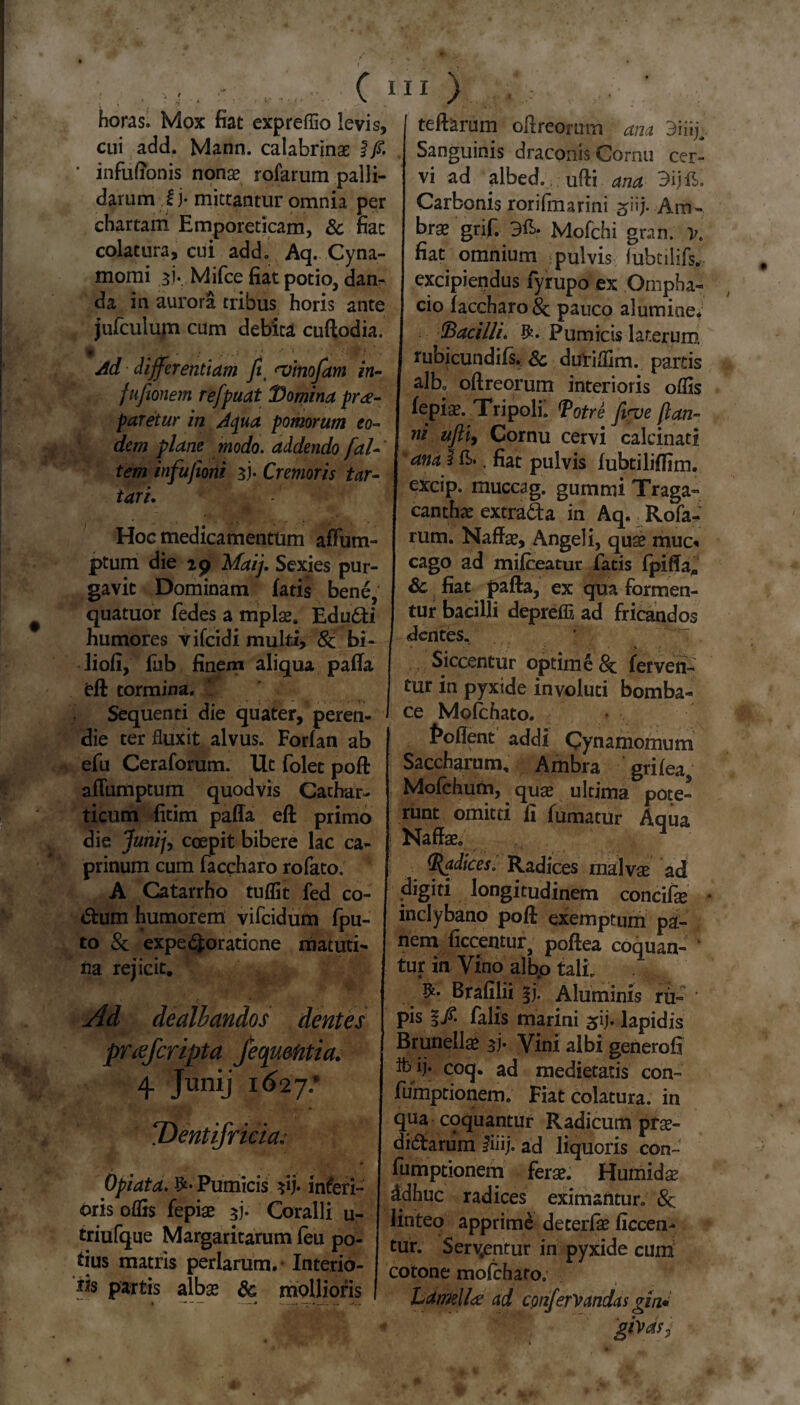 ( III )
horas. Mox fiat expreſſio levis,
cui add. Mann. calabrinæ ℥ſs.
infuſionis nonæ roſarum palli-
darum ℥j. mittantur omnia per
chartam Emporeticam, & fiat
colatura, cui add. Aq. Cyna-
momi ʒj. Miſce fiat potio, dan-
da in aurorâ tribus horis ante
juſculum cum debitâ cuſtodia.
Ad differentiam ſi vinoſam in-
fuſionem reſpuat Domina præ-
paretur in Aqua pomorum eo-
dem plane modo. addendo ſal-
tem infuſioni ʒj. Cremoris tar-
tari.
Hoc medicamentum aſſum-
ptum die 29 Maij. Sexies pur-
gavit Dominam ſatis bene,
quatuor ſedes a mplæ. Educti
humores viſcidi multi, & bi-
lioſi, ſub finem aliqua paſſa
eſt tormina.
Sequenti die quater, peren-
die ter fluxit alvus. Forſan ab
eſu Ceraſorum. Ut ſolet poſt
aſſumptum quodvis Cathar-
ticum ſitim paſſa eſt primo
die Junij, cœpit bibere lac ca-
prinum cum ſaccharo roſato.
A Catarrho tuſſit ſed co-
ctum humorem viſcidum ſpu-
to & expectoratione matuti-
na rejicit.
Ad dealbandos dentes
præſcripta ſequentia.
4 Junij 1627.
Dentifricia.
Opiata. ℞. Pumicis ʒij. interi-
oris oſſis ſepiæ ʒj. Coralli u-
triuſque Margaritarum ſeu po-
tius matris perlarum. Interio-
ris partis albæ & mollioris
teſtarum oſtreorum ana ℈iiij.
Sanguinis draconis Cornu cer-
vi ad albed. uſti ana ℈ijſs.
Carbonis roriſmarini ʒiij. Am-
bræ griſ. ℈ſs. Moſchi gran. v.
fiat omnium pulvis ſubtiliſs.
excipiendus ſyrupo ex Ompha-
cio ſaccharo & pauco alumine.
Bacilli. ℞. Pumicis laterum
rubicundiſs. & duriſſim. partis
alb. oſtreorum interioris oſſis
ſepiæ. Tripoli. Potré ſive ſtan-
ni uſti, Cornu cervi calcinati
ana ℥ ſs. fiat pulvis ſubtiliſſim.
excip. muccag. gummi Traga-
canthæ extracta in Aq. Roſa-
rum. Naffæ, Angeli, quæ muc-
cago ad miſceatur ſatis ſpiſſa,
& fiat paſta, ex qua formen-
tur bacilli depreſſi ad fricandos
dentes.
Siccentur optimé & ſerven-
tur in pyxide involuti bomba-
ce Moſchato.
Poſſent addi Cynamomum
Saccharum, Ambra griſea,
Moſchum, quæ ultima pote-
runt omitti ſi ſumatur Aqua
Naffæ.
Radices. Radices malvæ ad
digiti longitudinem conciſæ
inclybano poſt exemptum pa-
nem ſiccentur, poſtea coquan-
tur in Vino albo tali.
℞. Braſilii ℥j. Aluminis ru-
pis ℥ſs. ſalis marini ʒij. lapidis
Brunellæ ʒj. Vini albi generoſi
℔ij. coq. ad medietatis con-
ſumptionem. Fiat colatura. in
qua coquantur Radicum præ-
dictarum ℥iiij. ad liquoris con-
ſumptionem feræ. Humidæ
adhuc radices eximantur. &
linteo apprimè deterſæ ſiccen-
tur. Serventur in pyxide cum
cotone moſchato.
Lamellæ ad conſervandas gin-
givas,